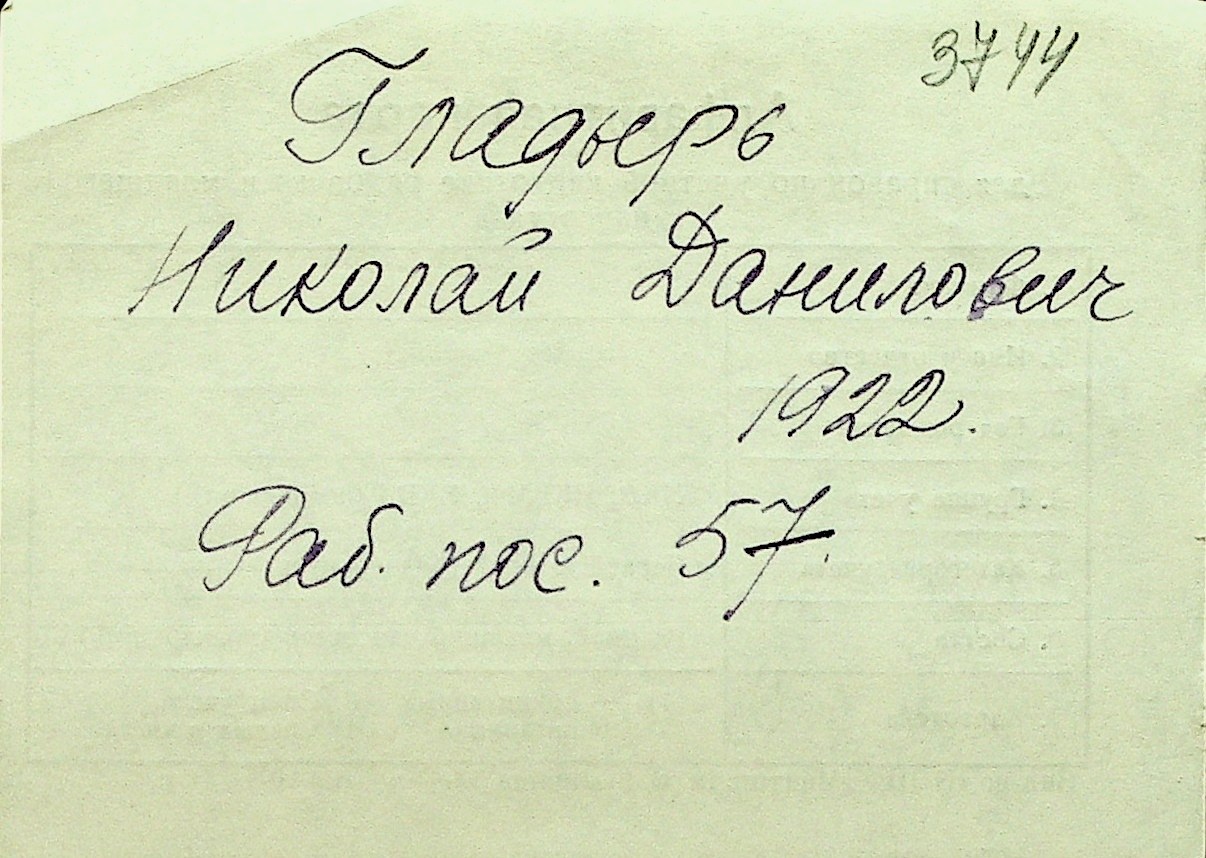 3744
Гладырь
Николай Данилович
1922.
Раб. пос. 57.